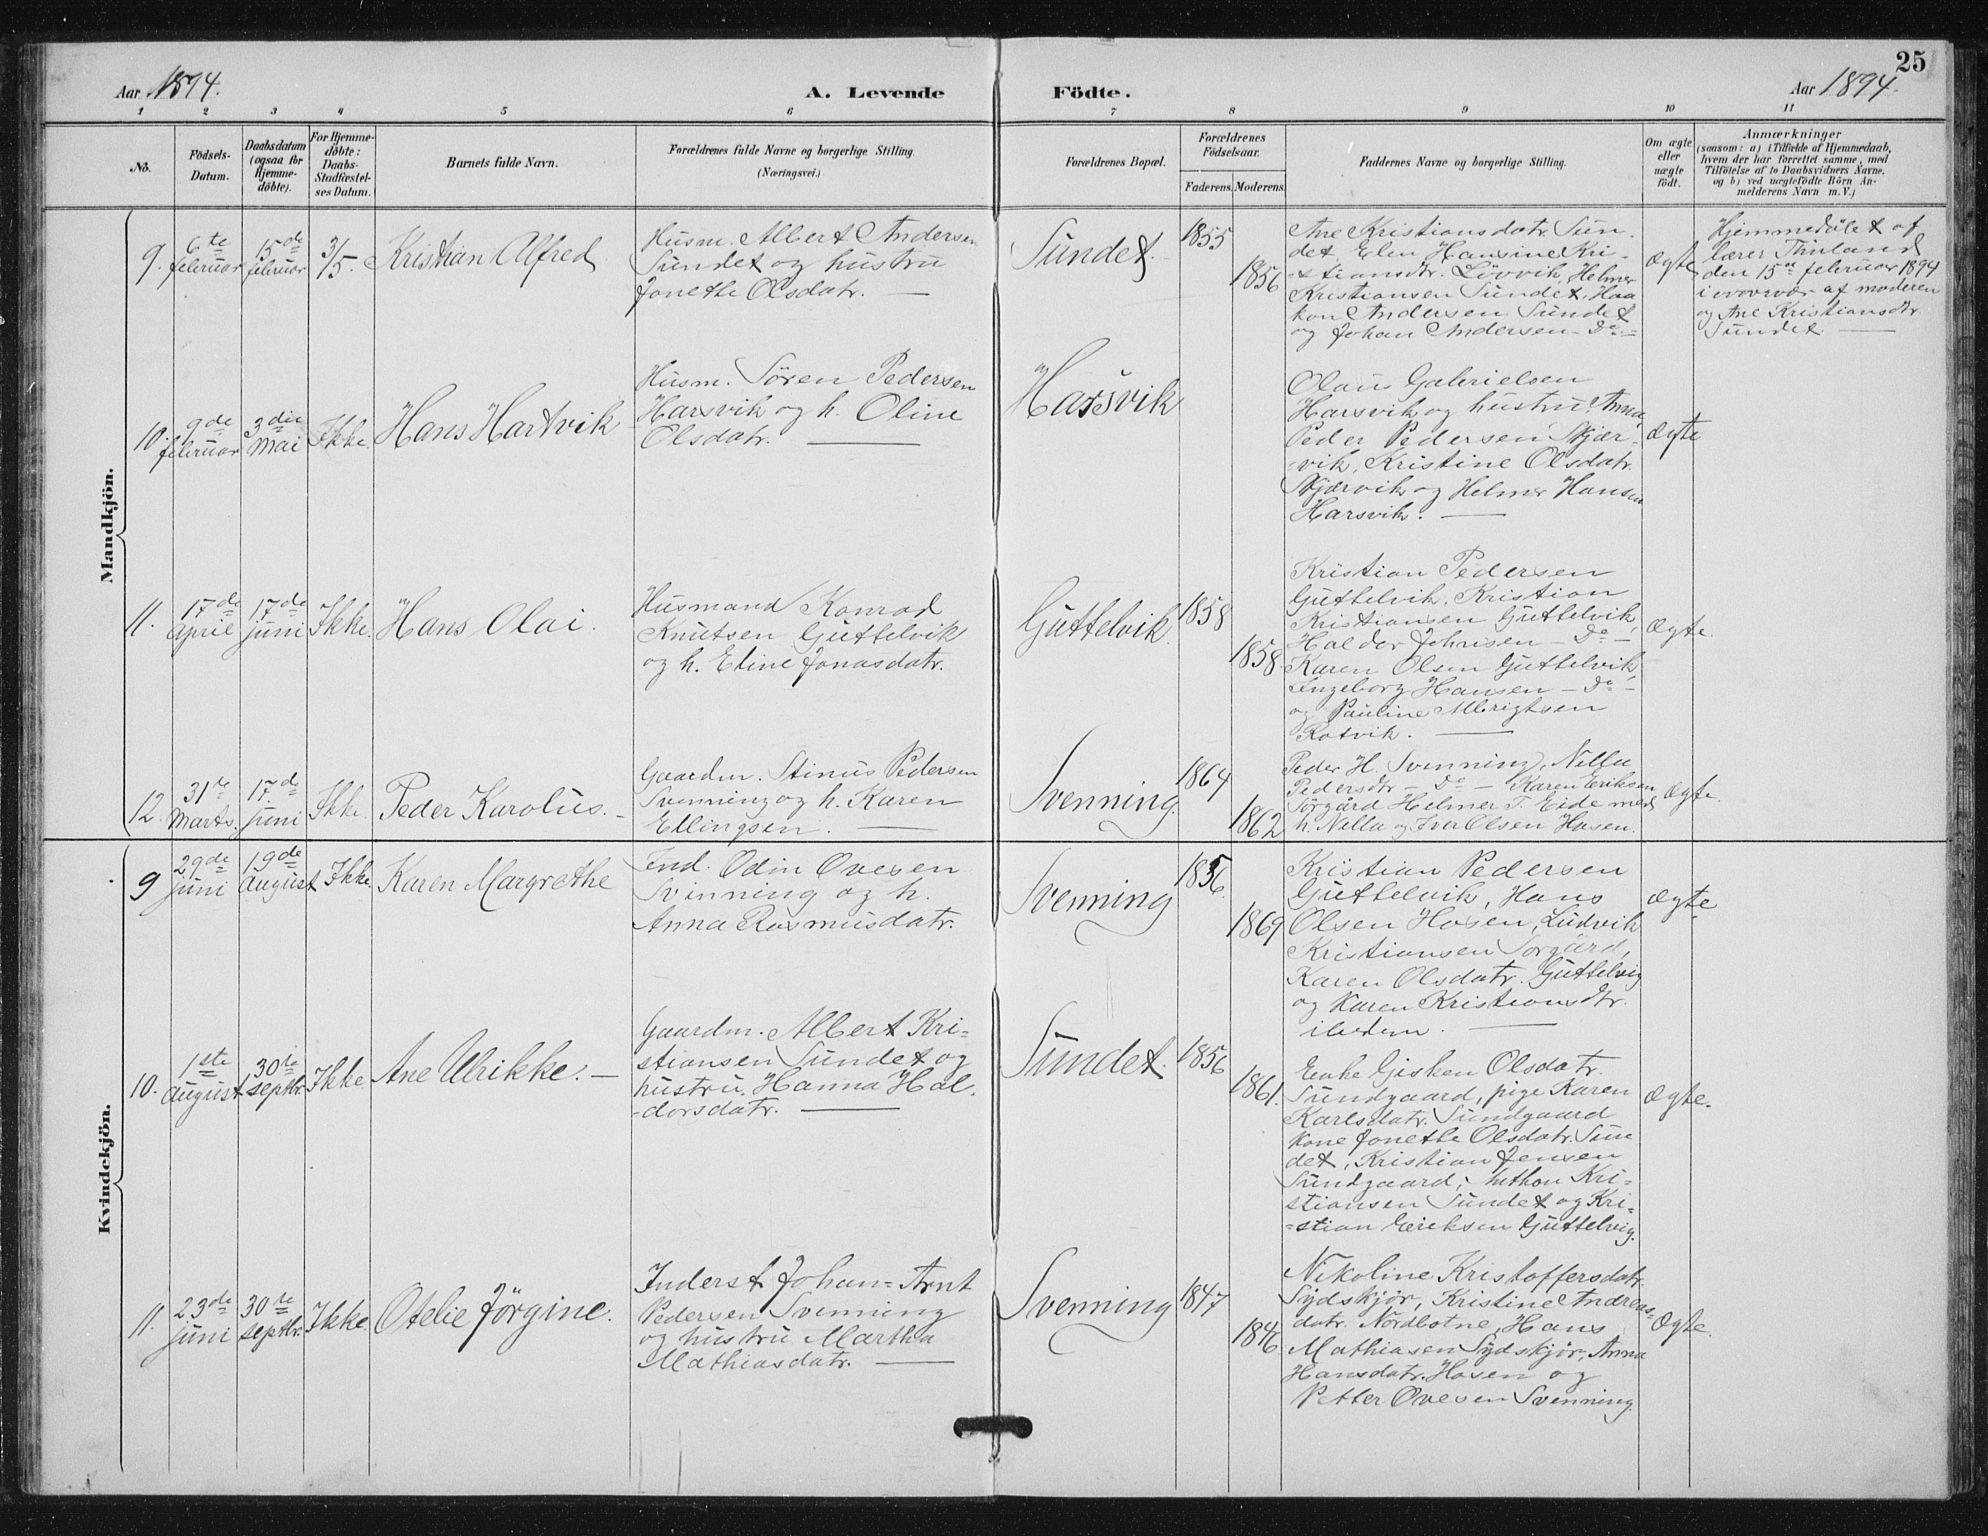 25
Aar 1894.
A. Levende Födte.
Aar 1894.
1 2 3 4 5 6 7 8 9 10 11
No.
Födsels-
Datum.
Daabsdatum
(ogsaa for
Hjemme-
döbte).
For Hjemme-
döbte:
Daabs-
Stadfæstel-
ses Datum.
Barnets fulde Navn.
Forældrenes fulde Navne og borgerlige Stilling.
(Næringsvei.)
Forældrenes Bopæl.
Forældrenes
Födselsaar.
Faderens. Moderens.
Faddernes Navne og borgerlige Stilling.
Om ægte
eller
uægte
födt.
Anmærkninger
(saasom: a) i Tilfælde af Hjemmedaab,
hvem der har forrettet samme, med
Tilföielse af to Daabsvidners Navne,
og b) ved uægtefödte Börn An-
melderens Navn m. V.)
Mandkjön.
9.
6te
februar
15de
februar
3/5.
Kristian Alfred
Husm. Albert Andersen
Sundet og hustru
Jonette Olsdatr. —
Sundet.
1855
1856
Ane Kristiansdatr. Sun-
det, Elen Hansine Kri-
stiansdtr. Lövvik, Helmer
Kristiansen Sundet, Haa
kon Andersen Sundet
og Johan Andersen – Do –
ægte
Hjemmedöbt af
lærer
den 15de februar 1894
af moderen
og Ane Kristiansdtr
Sundet. —
10.
9de
februar
3die
Mai
Ikke.
Hans Hartvik
Husm. Sören Pedersen
Harsvik og h. Oline
Olsdatr. —
Harsvik
Olaus Gabrielsen
Harsvik og hustru Anna,
Peder Pedersen Skjær-
vik, Kristine Olsdatr.
Skjærvik og Helmer Hansen
Harsvik. —
ægte
11.
17de
April
17de
juni
Ikke.
Hans Olai.
Husmand Konrad
Knutsen Guttelvik
og h. Eline Jonasdatr.
Guttelvik
1858
1858.
Kristian Pedersen
Guttelvik, Kristian
Kristiansen Guttelvik,
Haldor Johnsen – Do –
Karen Olsen Guttelvik,
Ingeborg Hansen – Do –
og Pauline Albrigtsen
Ratvik. —
ægte.
12.
31te
Marts.
17de
juni
Ikke.
Peder Karolus. –
Gaardm. Stinus Pedersen
Svenning og h. Karen
Ellingsen. —
Svenning.
1864
1862
Peder H. Svenning, Nilla
Pedersdtr – Do – Karen Eriksen
Sörgård Helmer T. Eide med
h. Nilla og Iver Olsen Hasen.
ægte.
Kvindekjön.
9
29de
juni
19de
August
Ikke.
Karen Margrethe
Ind. Odin Ovesen
Svinning og h.
Anna Rasmusdatr.
Svenning
1856.
1869
Kristian Pedersen
Guttelvik, Hans
Olsen Hosen, Ludvik
Kristiansen Sörgård,
Karen Olsdatr. Guttelvig
og Karen Kristiansdtr.
ibidem. —
ægte.
10.
1ste
August
30te
septbr.
Ikke
Ane Ulrikke. –
Gaardm. Albert Kri-
stiansen Sundet og
hustru Hanna Hal-
-dorsdatr. —
Sundet.
1856
1861.
Enke Gisken Olsdatr.
Sundgaard, pige Karen
Karlsdatr. Sundgaard
Kone Jonette Olsdatr. Sun
det, Kristian Jensen
Sundgaard, Anthon Kri-
stiansen Sundet og Kri-
-stian Eriksen Guttelvig.
ægte.
11.
23de
juni
30te
septbr.
Ikke.
Otelie Jörgine.
Inderst Johan-Arnt
Pedersen Svenning
og hustru Martha
Mathiasdatr. —
Svenning
1847
1846
Nikoline Kristoffersdatr.
Sydskjör, Kristine Andreas-
datr. Nordbotne, Hans
Mathiasen Sydskjör, Anna
Hansdatr. Hosen og
Petter Ovesen Svenning.
ægte.